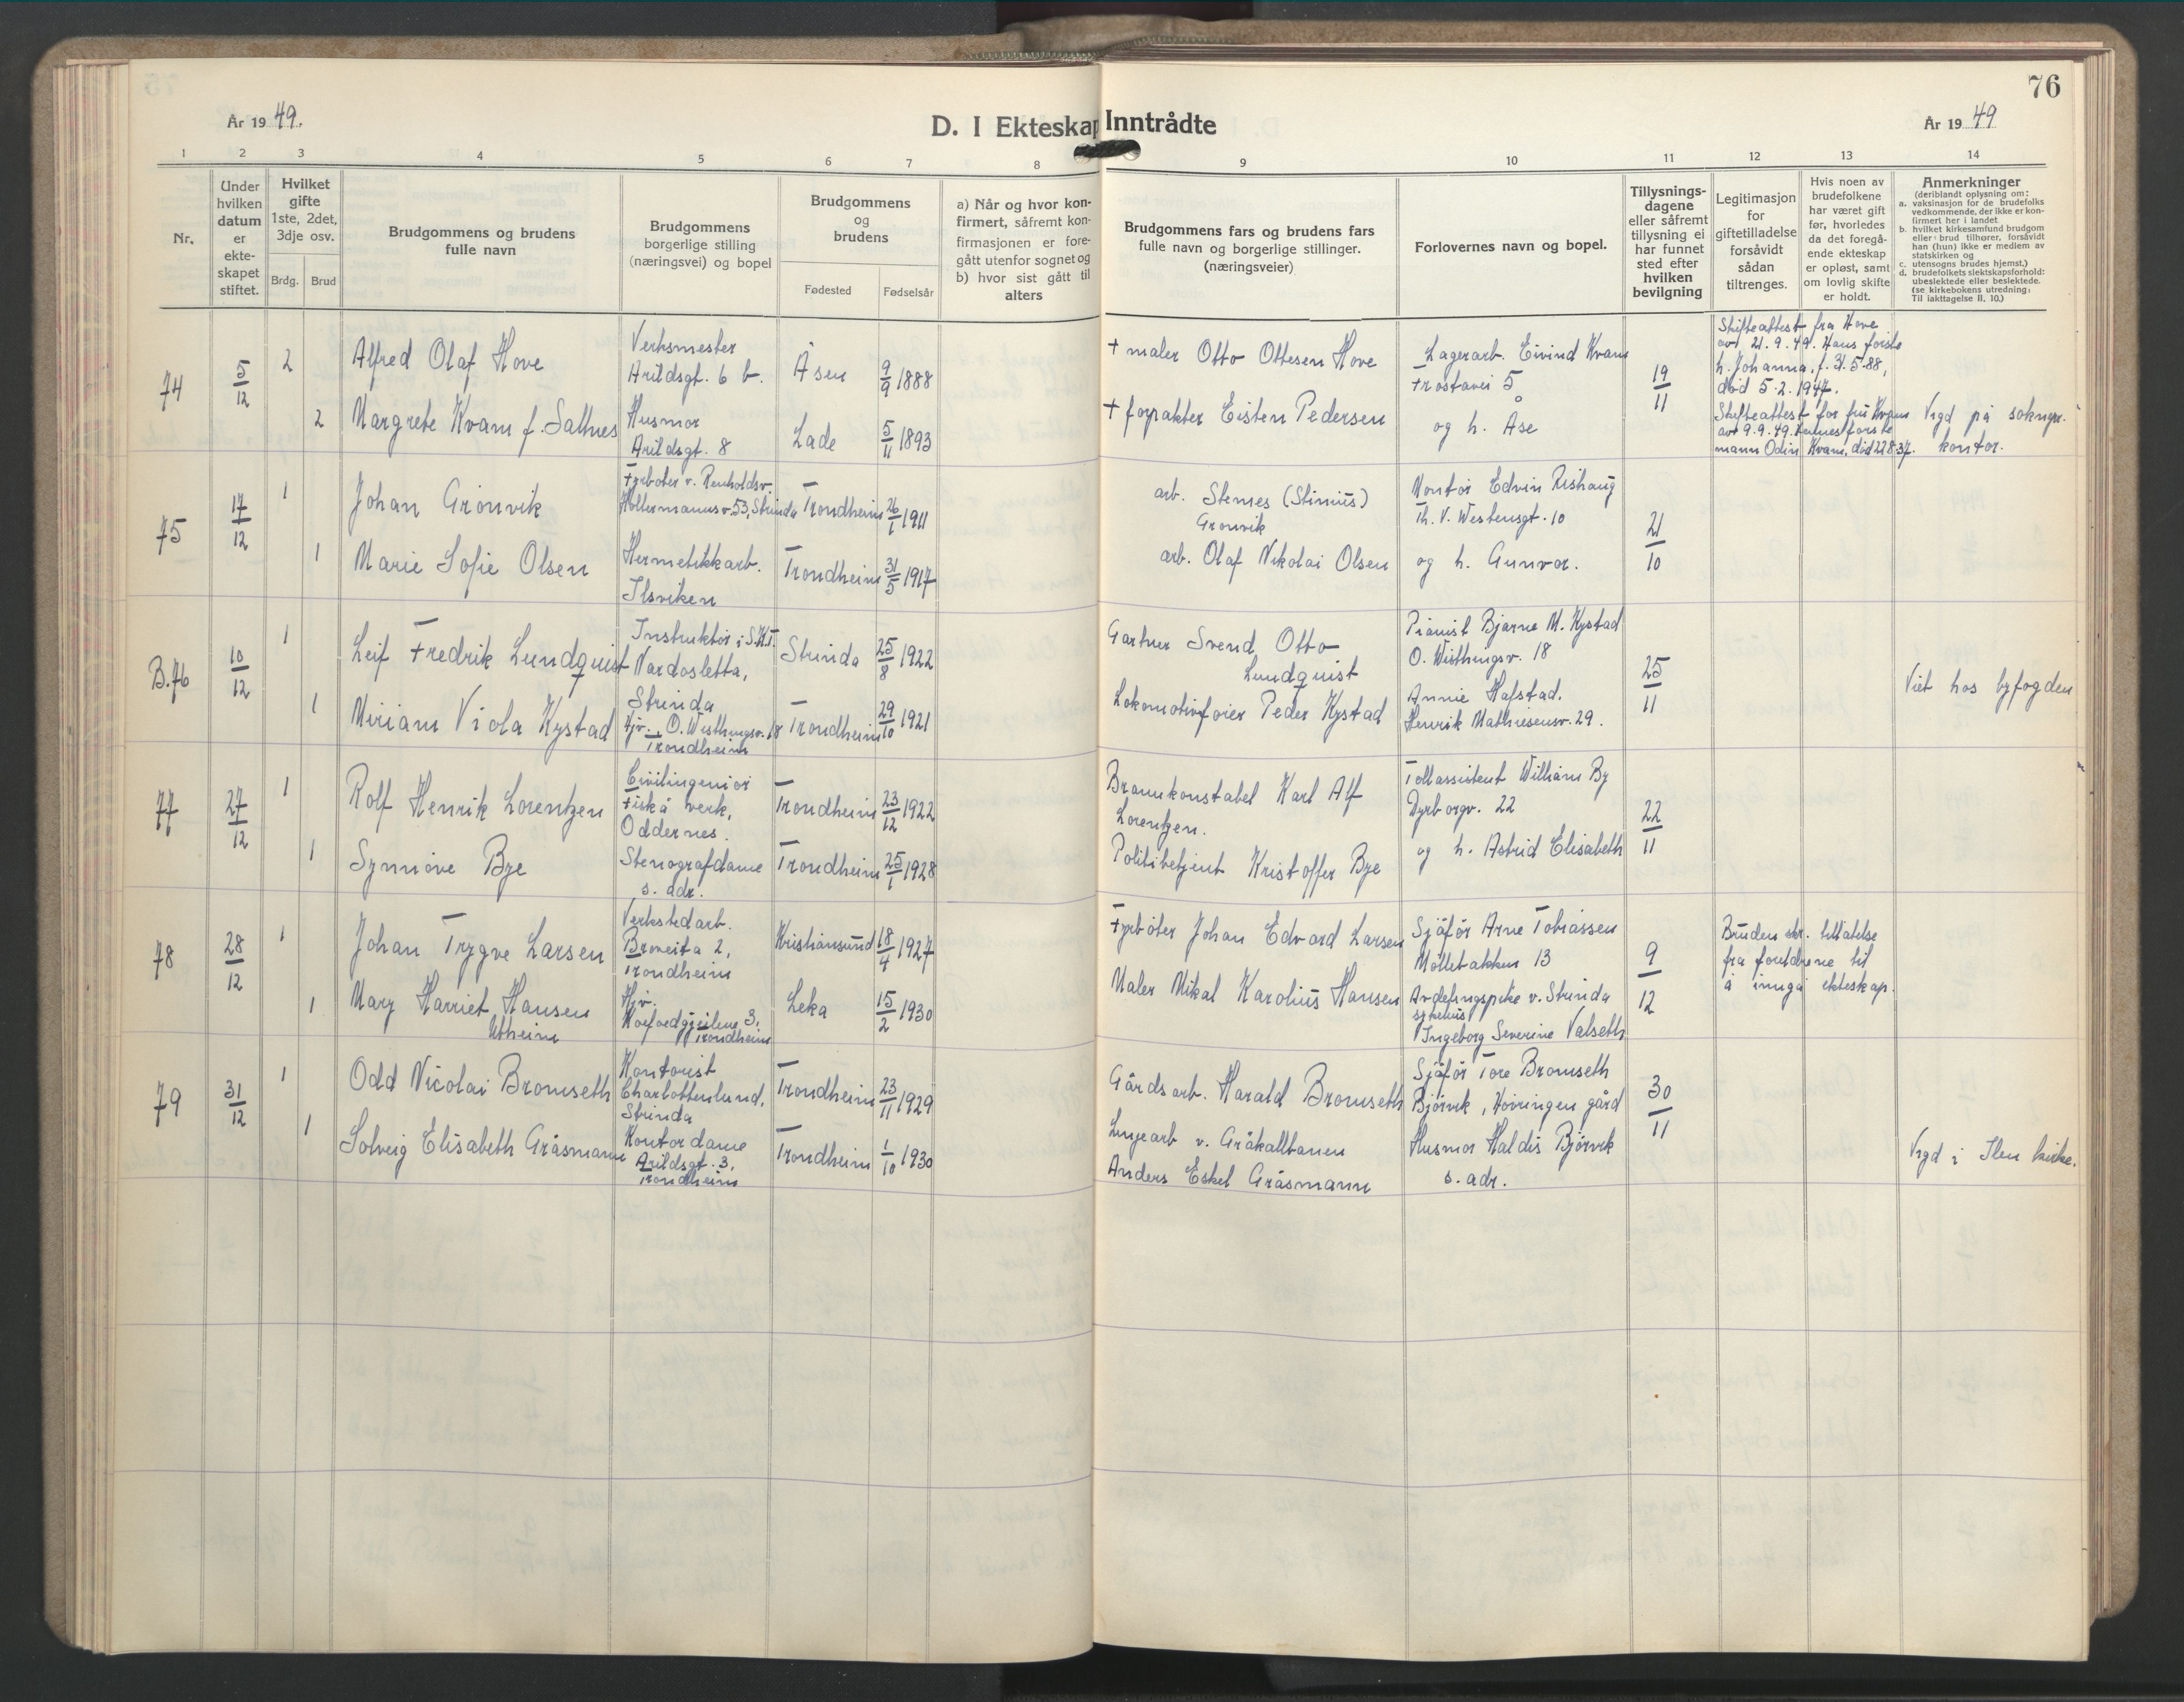 76
År 1949.
D. I Ekteskap Inntrådte
År 1949
1 2 3 4 5 6 7 8 9 10 11 12 13 14
Nr.
Under hvilken datum er ekte- skapet stiftet.
Hvilket gifte 1ste, 2det, 3dje osv.
Brdg. Brud
Brudgommens og brudens fulle navn
Brudgommens borgerlige stilling (næringsvei) og bopel
Brudgommens og brudens
Fødested Fødselsår
a) Når og hvor kon- firmert, såfremt kon- firmasjonen er fore- gått utenfor sognet og b) hvor sist gått til alters
Brudgommens fars og brudens fars fulle navn og borgerlige stillinger. (næringsveier)
Forlovernes navn og bopel.
Tillysnings- dagene eller såfremt tillysning ei har funnet sted efter hvilken bevilgning
Legitimasjon for giftetilladelse forsåvidt sådan tiltrenges.
Hvis noen av brudefolkene har været gift før, hvorledes da det foregå- ende ekteskap er opløst, samt om lovlig skifte er holdt.
Anmerkninger
(deriblandt oplysning om:
a. vaksinasjon for de brudefolks vedkommende, der ikke er kon- firmert her i landet
b. hvilket kirkesamfund brudgom eller brud tilhører, forsåvidt han (hun) ikke er medlem av statskirken og
c. utensogns brudes hjemst.)
d. brudefolkets slektskapsforhold: ubeslektede eller beslektede.
(se kirkebokens utredning: Til iakttagelse II, 10.)
74
5/12
2
Alfred Olaf Hove
Verksmester
Arildsgt. 6 b.
Åsen
9/9 1888
+ maler Otto Ottesen Hove
Lagerarb. Eivind Kvam
Frostavei 5
19/11
Skifteattest fra Hove
avt 21.9.49. Hans første
h. Johanna, f. 31.5.88,
død 5.2.1947.
2
Margrete Kvam f. Saltnes
Husmor
Arildsgt. 8
Lade
5/11 1893
+ forpakter Eisten Pedersen
og h. Åse
Skifteattest for fru Kvam
avt 9.9.49. Hennes første
mann Odin Kvam, død 22.8.37.
Vigd på sokngpr.
kontor.
75
17/12
1
Johan Grønvik
Fyrbøter v. Renholdsv.
Holtermannsv. 53, Strinda
Trondheim
26/1 1911
arb. Stenses (Stinius)
Grønvik
Montør Edvin Rishaug
Th. V. Westensgt. 10
21/10
1
Marie Sofie Olsen
Hermetikkarb.
Ilsviken
Trondheim
31/5 1917
arb. Olaf Nikolai Olsen
og h. Gunvor.
B.76
10/12
1
Leif Fredrik Lundquist
Instruktør i S.K.T.
Vardosletta,
Strinda
Strinda
25/8 1922
Gartner Svend Otto
Lundquist
Pianist Bjarne M. Kystad
O. Wisthingsv. 18
25/11
1
Miriam Viola Kystad
Hjv. O. Wisthingsv. 18
Trondheim
Trondheim
29/10 1921
Lokomotivfører Peder Kystad
Annie Hafstad.
Henrik Mathiesensv. 29.
Viet hos byfogden
77
27/12
1
Rolf Henrik Lorentzen
Civilingeniør
Fiskå verk,
Oddernes.
Trondheim
23/12 1922
Brannkonstabel Karl Alf
Lorentzen.
Tollassistent William By
Dyrborgv. 22
22/11
1
Synnøve Bye
Stenografdame
s. adr.
Trondheim
25/1 1928
Politibetjent Kristoffer Bye
og h. Astrid Elisabeth
78
28/12
1
Johan Trygve Larsen
Verkstedarb.
Broveita 2,
Trondheim
Kristiansund
18/4 1927
Fyrbøter Johan Edvard Larsen
Sjåfør Arne Tobiassen
Møllebakken 13
9/12
Bruden har tillatelse
fra foreldrene til
å inngå ekteskap.
1
Mary Harriet Hansen
Utheim
Hjv.
Hoefoedgjeilene 3,
Trondheim
Leka
15/2 1930
Maler Mikal Karolius Hansen
Avdelingspike v. Strinda
sykehus
Ingeborg Severine Valseth
79
31/12
1
Odd Nicolai Bromseth
Kontorist
Charlottenlund,
Strinda
Trondheim
23/11 1929
Gårdsarb. Harald Bromseth
Sjåfør Tore Bromseth
Bjørvik, Høvringen gård
30/11
1
Solveig Elisabeth Gråsmann
Kontordame
Arildsgt. 3,
Trondheim
Trondheim
1/10 1930
Linjearb v. Gråkallbanen
Anders Eskel Gråsmann
Husmor Haldis Bjørvik
s. adr.
Vigd i Ilen kirke.